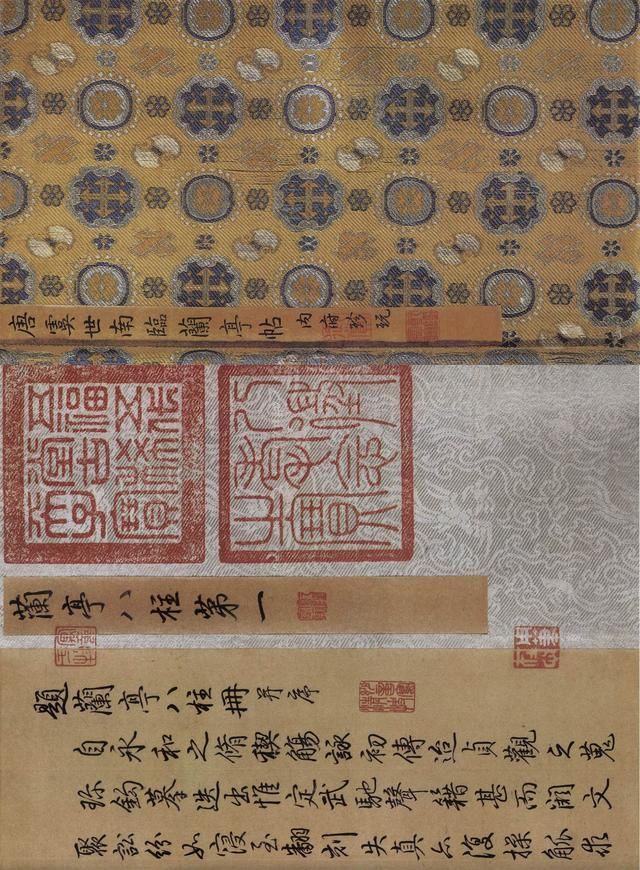 唐虞世南臨蘭亭帖 內府珍玩
五福五代堂古稀天子寶
八徵耄念之寶
蘭亭八柱第一
題蘭亭八柱冊 并序
自永和之脩禊觴詠初傳迨貞觀之蒐
珎鉤摹迭出惟定武馳聲藉甚而文
聚訟紛如寖至翻刻失真亦復操觚